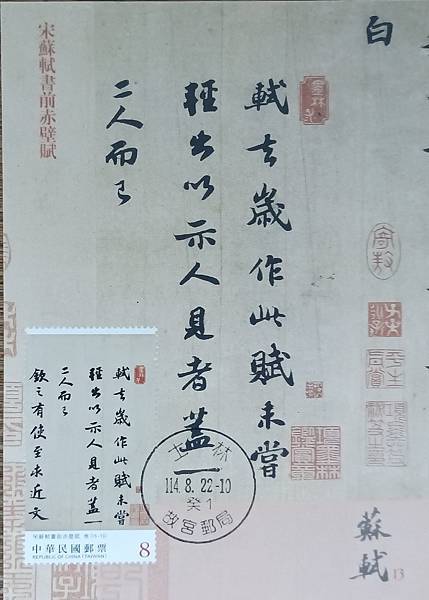 宋蘇軾書前赤壁賦
白
軾去歲作此賦未嘗
輕出以示人見者蓋一
二人而已
軾去歲作此賦未嘗
輕出以示人見者蓋一
二人而已
欽之有使至求近文
宋蘇軾書前赤壁賦
中華民國郵票
REPUBLIC OF CHINA (TAIWAN)
8
士林
114.8.22-10
癸1
故宮郵局
蘇軾
13